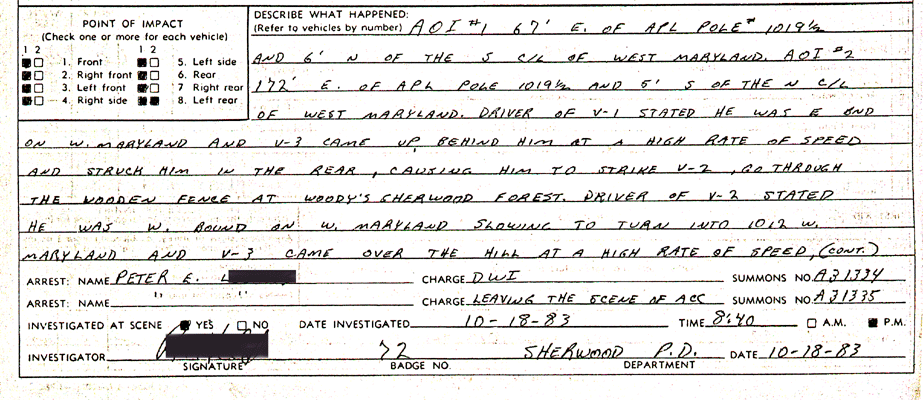 POINT OF IMPACT
(Check one or more for each vehicle)
1 2 1 2
1. Front 5. Left side
2. Right front 6. Rear
3. Left front 7 Right rear
4. Right side 8. Left rear
DESCRIBE WHAT HAPPENED:
(Refer to vehicles by number) AOI #1 67' E. OF APL POLE # 1019½
AND 6' N OF THE S C/L OF WEST MARYLAND. AOI #2
172' E. OF APL POLE 1019½ AND 5' S OF THE N C/L
OF WEST MARYLAND. DRIVER OF V-1 STATED HE WAS E BND
ON W. MARYLAND AND V-3 CAME UP BEHIND HIM AT A HIGH RATE OF SPEED
AND STRUCK HIM IN THE REAR, CAUSING HIM TO STRIKE V-2, GO THROUGH
THE WOODEN FENCE AT WOODY'S SHERWOOD FOREST. DRIVER OF V-2 STATED
HE WAS W. BOUND ON W. MARYLAND SLOWING TO TURN INTO 1012 W.
MARYLAND AND V-3 CAME OVER THE HILL AT A HIGH RATE OF SPEED, (CONT.)
ARREST: NAME PETER E. L CHARGE DWI SUMMONS NO. A31334
ARREST: NAME " " CHARGE LEAVING THE SCENE OF ACC SUMMONS NO. A31335
INVESTIGATED AT SCENE YES NO DATE INVESTIGATED 10-18-83 TIME 8:40 A.M. P.M.
INVESTIGATOR 72 SHERWOOD P.D. DATE 10-18-83
SIGNATURE BADGE NO. DEPARTMENT